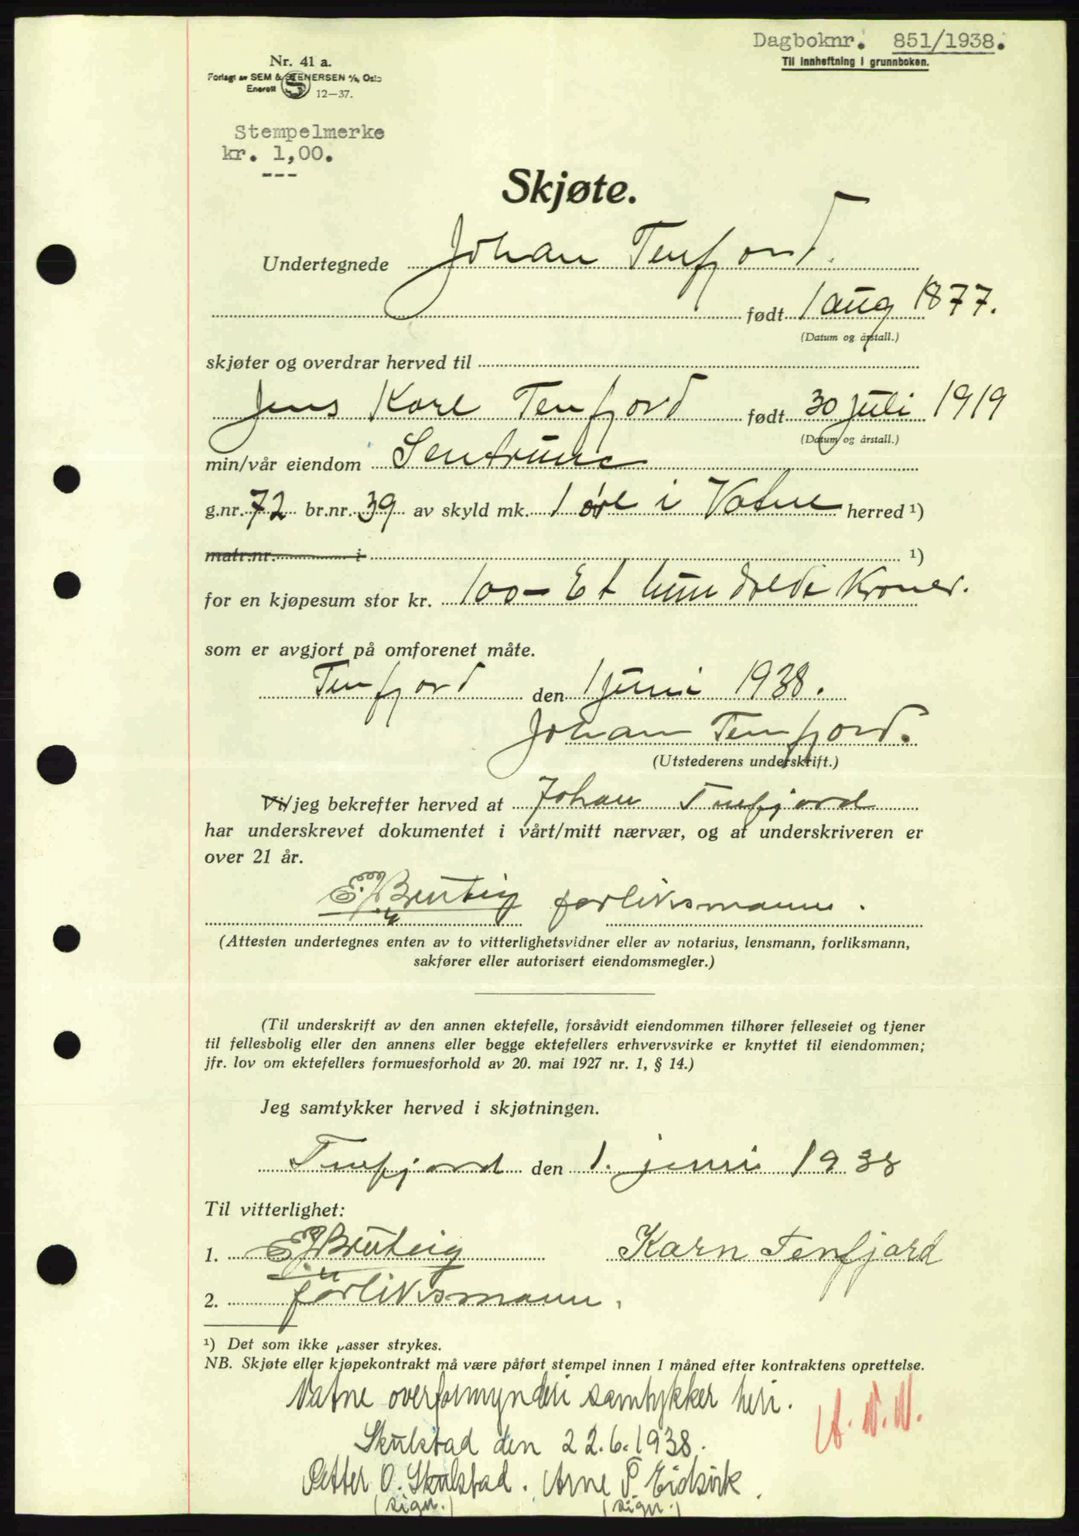 Dagboknr. 851/1938.
Til innheftning i grunnboken.
Nr. 41 a.
Forlagt av SEM & STENERSEN A/S, Oslo
Enerett 12—37.
Stempelmerke
kr. 1,00.
---
Skjøte.
Undertegnede Johan Tenfjord.
født 1 aug 1877.
(Datum og årstall.)
skjøter og overdrar herved til
Jens Kare Tenfjord født 30 juli 1919
(Datum og årstall.)
min/vår eiendom Sentrum
g.nr. 72 br.nr. 39 av skyld mk. 1 øre i Vatne herred ¹)
matr.nr. i ¹)
for en kjøpesum stor kr. 100 - Et hundrede Kroner.
som er avgjort på omforenet måte.
Tenfjord den 1 juni 1938.
Johan Tenfjord.
(Utstederens underskrift.)
Vi/jeg bekrefter herved at Johan Tenfjord
har underskrevet dokumentet i vårt/mitt nærvær, og at underskriveren er
over 21 år.
E. J. Bruteig forliksmann.
(Attesten undertegnes enten av to vitterlighetsvidner eller av notarius, lensmann, forliksmann,
sakfører eller autorisert eiendomsmegler.)
(Til underskrift av den annen ektefelle, forsåvidt eiendommen tilhører felleseiet og tjener
til fellesbolig eller den annens eller begge ektefellers erhvervsvirke er knyttet til eiendommen;
jfr. lov om ektefellers formuesforhold av 20. mai 1927 nr. 1, § 14.)
Jeg samtykker herved i skjøtningen.
Tenfjord den 1. juni 1938
Til vitterlighet:
1. E J Bruteig Karn Tenfjord
2. forliksmann.
¹) Det som ikke passer strykes.
NB. Skjøte eller kjøpekontrakt må være påført stempel innen 1 måned efter kontraktens oprettelse.
Vatne overformynderi samtykker heri.
Skulstad den 22.6.1938.
Petter O. Skulstad. Arne P. Eidsvik.
(sign.) (sign.)